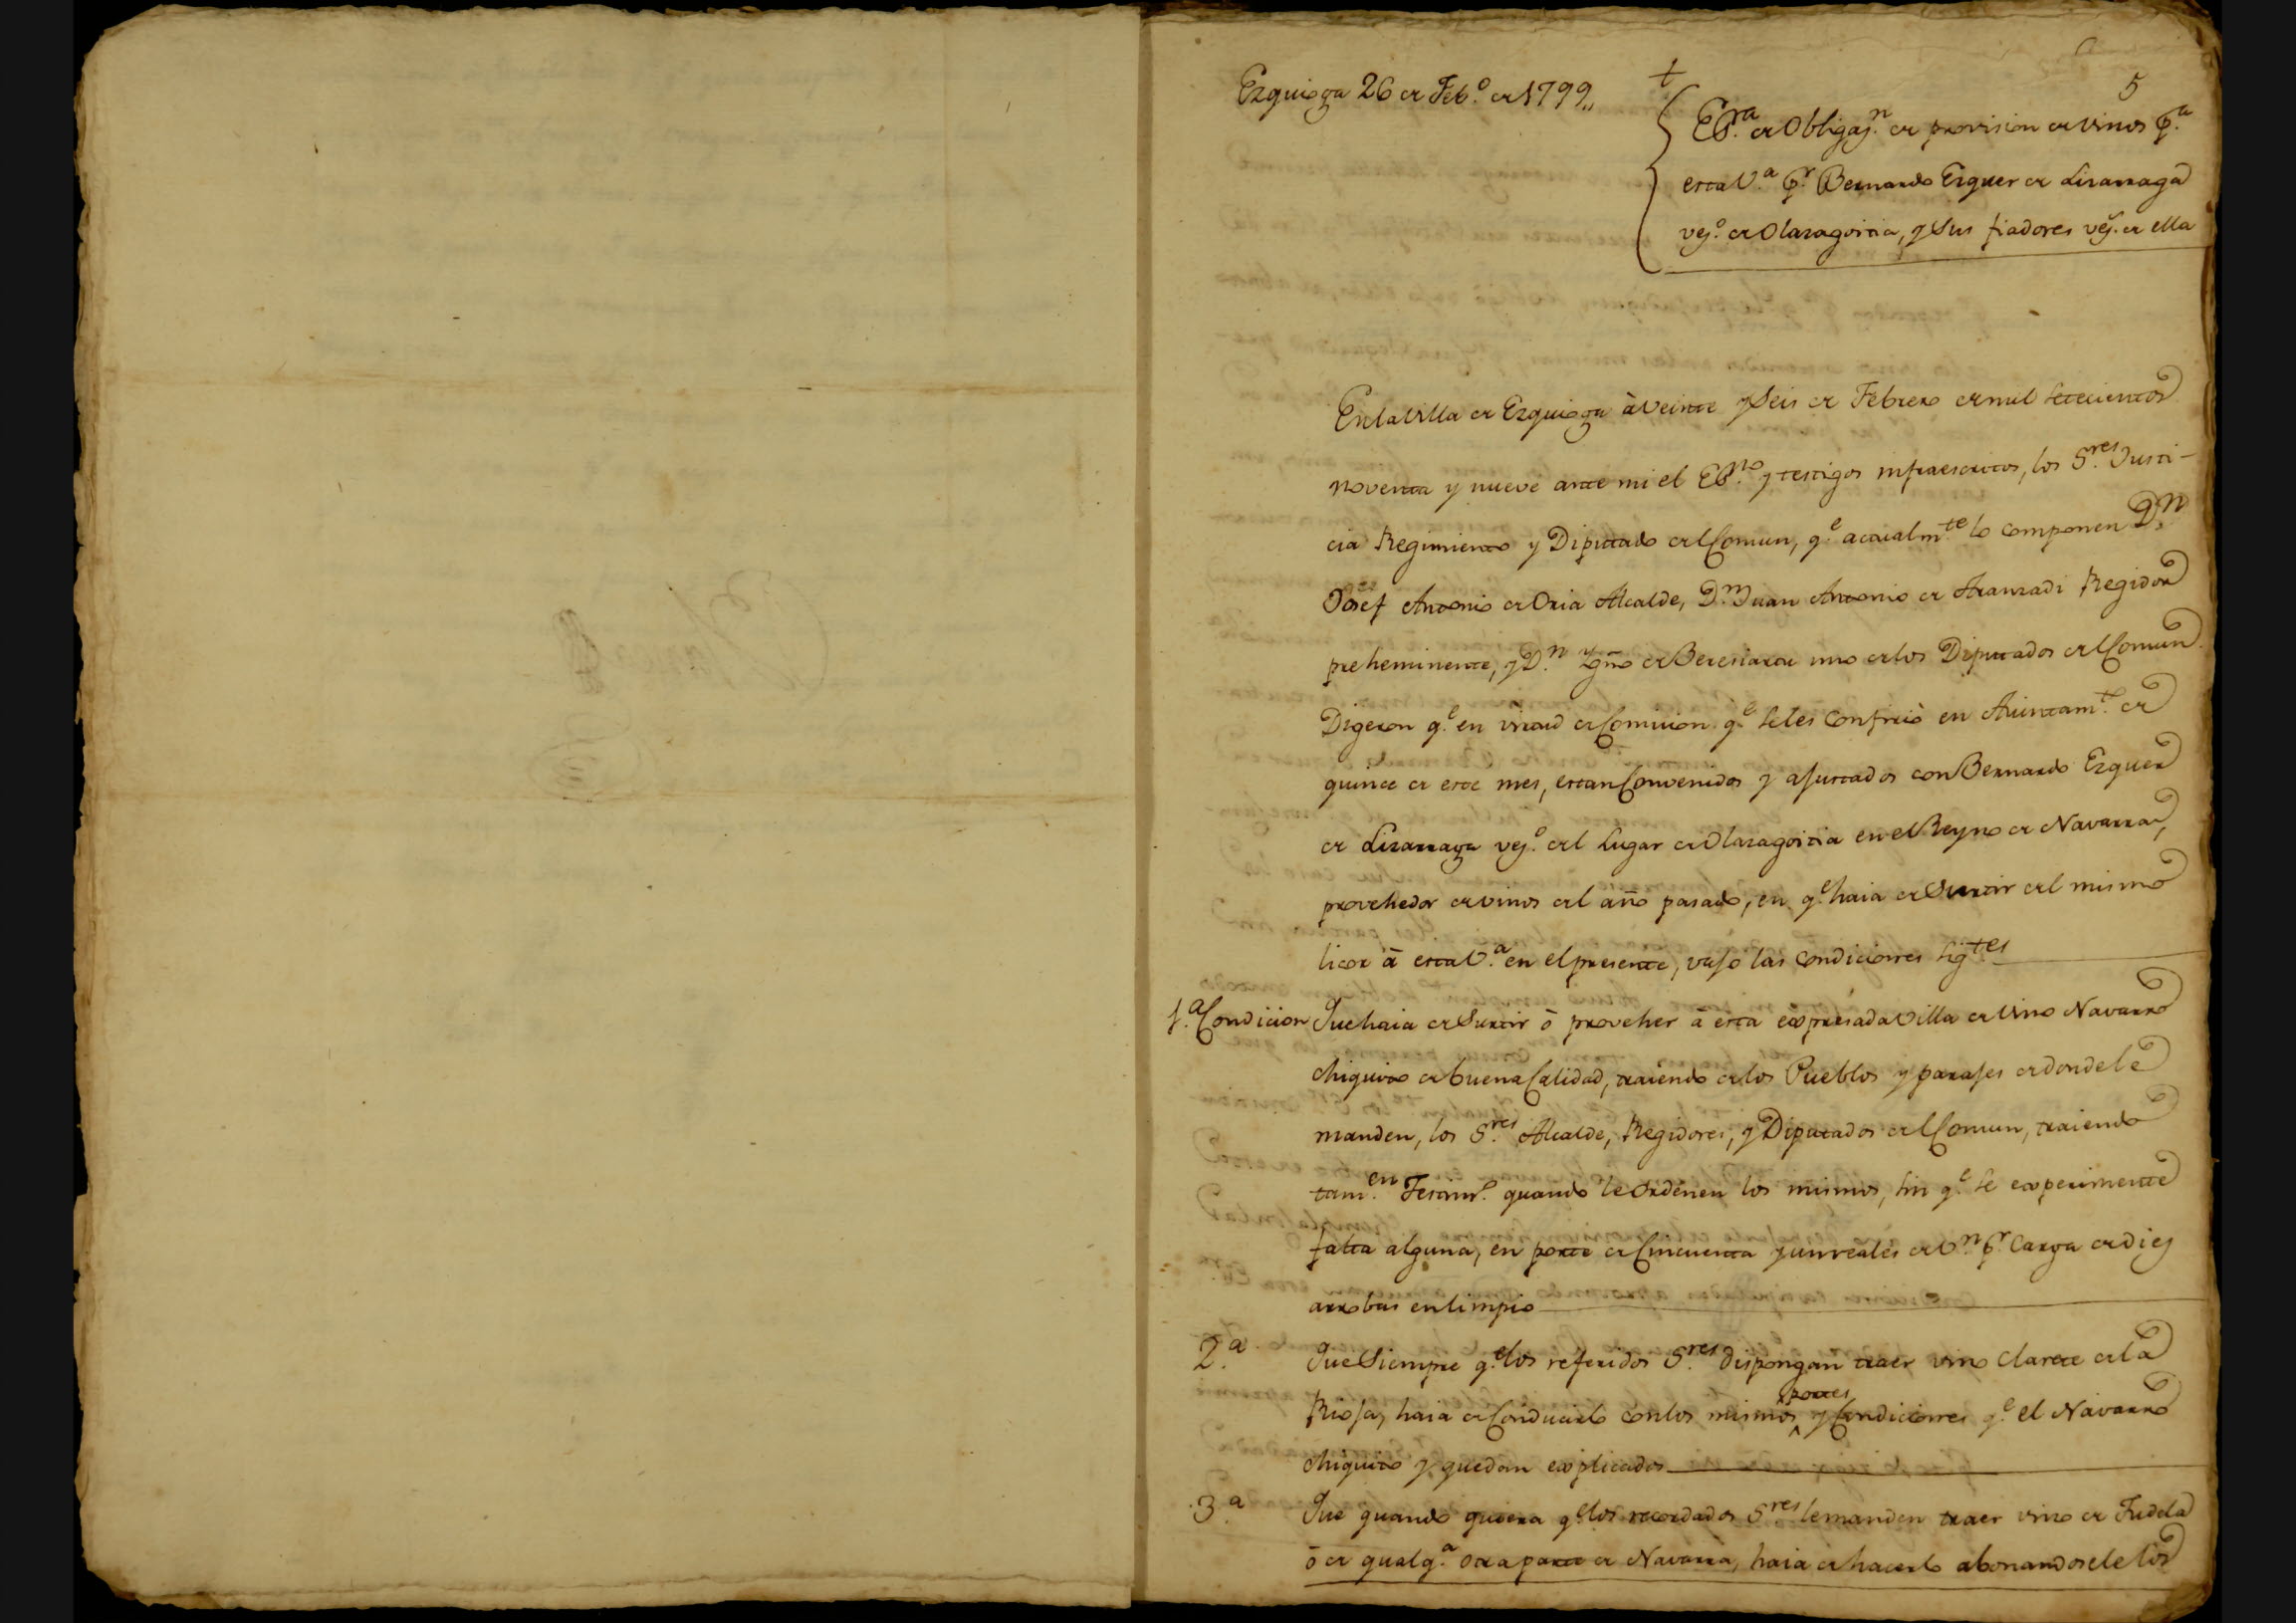 Ezquioga 26 de Feb.º de 1799,,
†
5
Es.ra de Obligaz.n de provision de vinos p.a
esta V.a p.r Bernardo Ezquer de Lizarraga
vez.º de Olazagoitia, y sus fiadores vez.s de ella
En la Villa de Ezquioga à veinte y seis de Febrero de mil setecientos
noventa y nueve ante mi el Es.no y testigos infraescritos, los S.res Justi-
cia Regimiento y Diputado del Comun, q.e actualm.te lo componen D.n
Josef Antonio de Oria Alcalde, D.n Juan Antonio de Aranzadi Regidor
preheminente, y D.n Ygn.o de Bereciartu uno de los Diputados del Comun
Digeron q.e en virtud de Comision q.e se les confirió en Aiuntam.to de
quince de este mes, estan Convenidos y ajustados con Bernardo Ezquer
de Lizarraga vez.º del Lugar de Olazagoitia en el Reyno de Navarra,
provehedor de vinos del año pasado, en q.e haia de Surtir del mismo
licor â esta V.a en el presente, vajo las condiciones sig.tes
1.a Condicion Que haia de Surtir ô proveher â esta expresada Villa de vino Navarro
chiquito de buena Calidad, traiendo de los Pueblos y parajes de donde le
manden, los S.res Alcalde, Regidores, y Diputados del Comun, traiendo
tam.en Testim.º quando le ordenen los mismos, sin q.e se experimente
falta alguna, en porte de Cincuenta y un reales de V.n p.r Carga de diez
arrobas en limpio
2.a Que Siempre q.e los referidos S.res dispongan traer vino Clarete de la
Rioja, haia de Conducirlo con los mismos portes y Condiciones q.e el Navarro
chiquito y quedan explicados
3.a Que quando quiera q.e los recordados S.res le manden traer vino de Tudela
ô de qualq.a otra parte de Navarra, haia de hacerlo abonandosele los